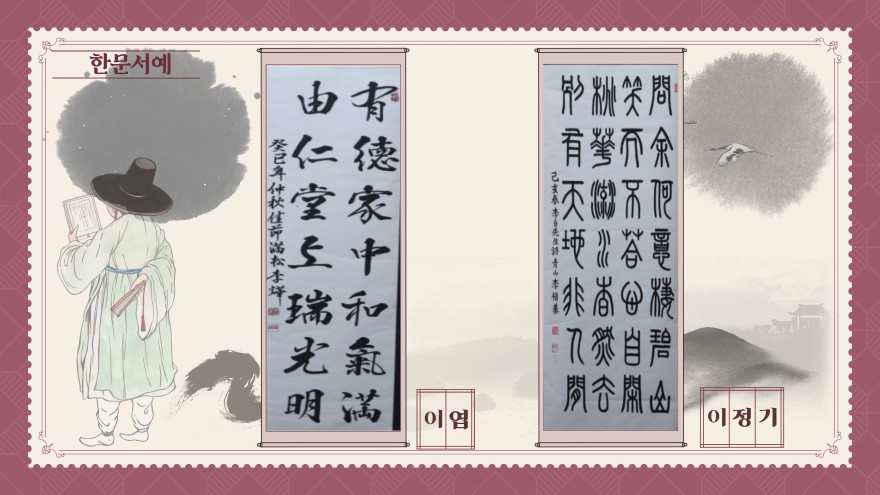 한문서예
有德家中和氣滿
由仁堂上瑞光明
癸巳年仲秋佳節滿松李燁
이엽
問余何意棲碧山
笑而不答心自閑
桃華流水杳然去
別有天地非人間
己亥春李白先生詩青山李
이정기